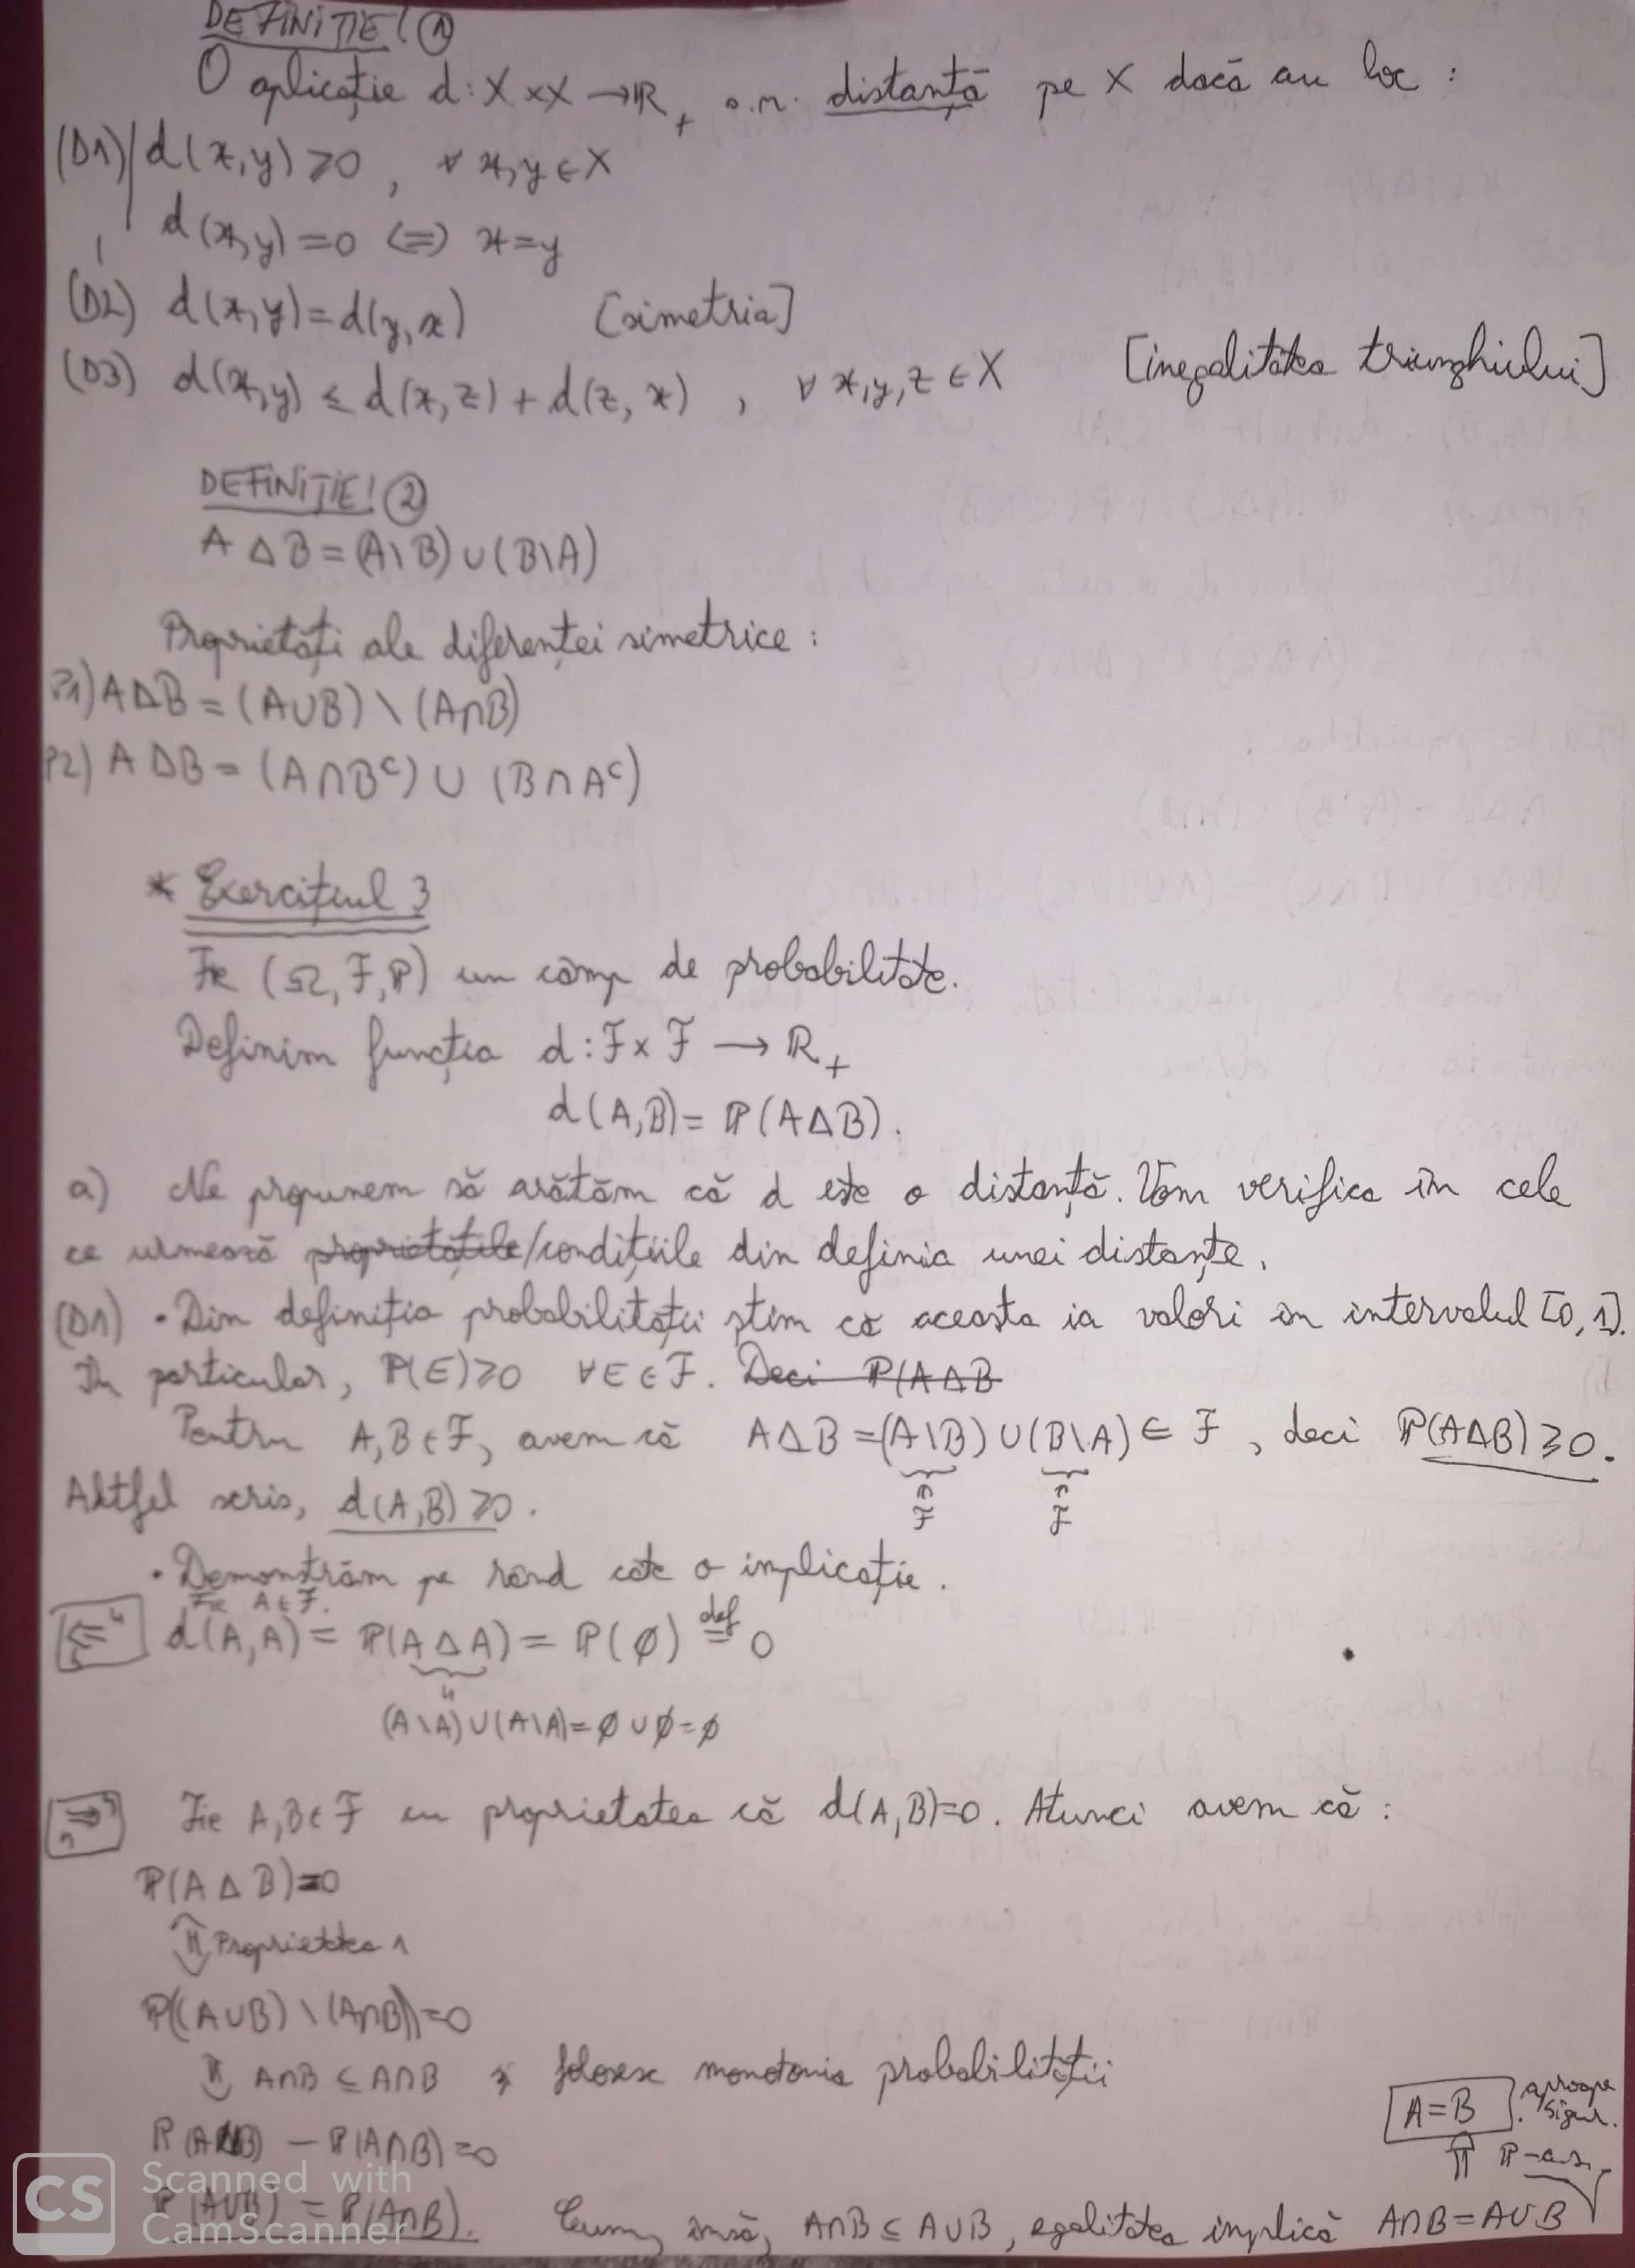 DEFINIȚIE! ①
O aplicație d: X x X → ℝ₊ s.n. distanță pe X dacă au loc :
(D1) d(x,y) ≥ 0 , ∀ x,y ∈ X
d(x,y) = 0 ⇔ x = y
(D2) d(x,y) = d(y,x) [simetria]
(D3) d(x,y) ≤ d(x,z) + d(z,x) , ∀ x,y,z ∈ X [inegalitatea triunghiului]
DEFINIȚIE! ②
A Δ B = (A\B) ∪ (B\A)
Proprietăți ale diferenței simetrice :
P1) A Δ B = (A∪B) \ (A∩B)
P2) A Δ B = (A∩Bᶜ) ∪ (B∩Aᶜ)
* Exercițiul 3
Fie (Ω, F, ℙ) un câmp de probabilitate.
Definim funcția d: F x F → ℝ₊
d(A,B) = ℙ(A Δ B).
a) Ne propunem să arătăm că d este o distanță. Vom verifica în cele
ce urmează proprietățile/condițiile din definia unei distanțe.
(D1) • Din definiția probabilității știm că aceasta ia valori în intervalul [0,1].
În particular, ℙ(E) ≥ 0 ∀E ∈ F. Deci ℙ(A Δ B
Pentru A,B ∈ F, avem că A Δ B = (A\B) ∪ (B\A) ∈ F , deci ℙ(AΔB) ≥ 0.
∈ F ∈ F
Altfel scris, d(A,B) ≥ 0 .
• Demonstrăm pe rând câte o implicație.
Fie A ∈ F.
"⇐" d(A,A) = ℙ(A Δ A) = ℙ(∅) def= 0
(A\A) ∪ (A\A) = ∅ ∪ ∅ = ∅
"⇒" Fie A,B ∈ F cu proprietatea că d(A,B)=0. Atunci avem că :
ℙ(A Δ B) = 0
⇕ Proprietatea 1
ℙ((A∪B) \ (A∩B)) = 0
⇓ A∩B ⊆ A∩B și folosesc monotonia probabilității
ℙ(A∪B) − ℙ(A∩B) = 0
A=B . aproape sigur.
⇑ ℙ-a.s.
ℙ(A∪B) = ℙ(A∩B). Cum, însă, A∩B ⊆ A∪B, egalitatea implică A∩B = A∪B
CS Scanned with
CamScanner